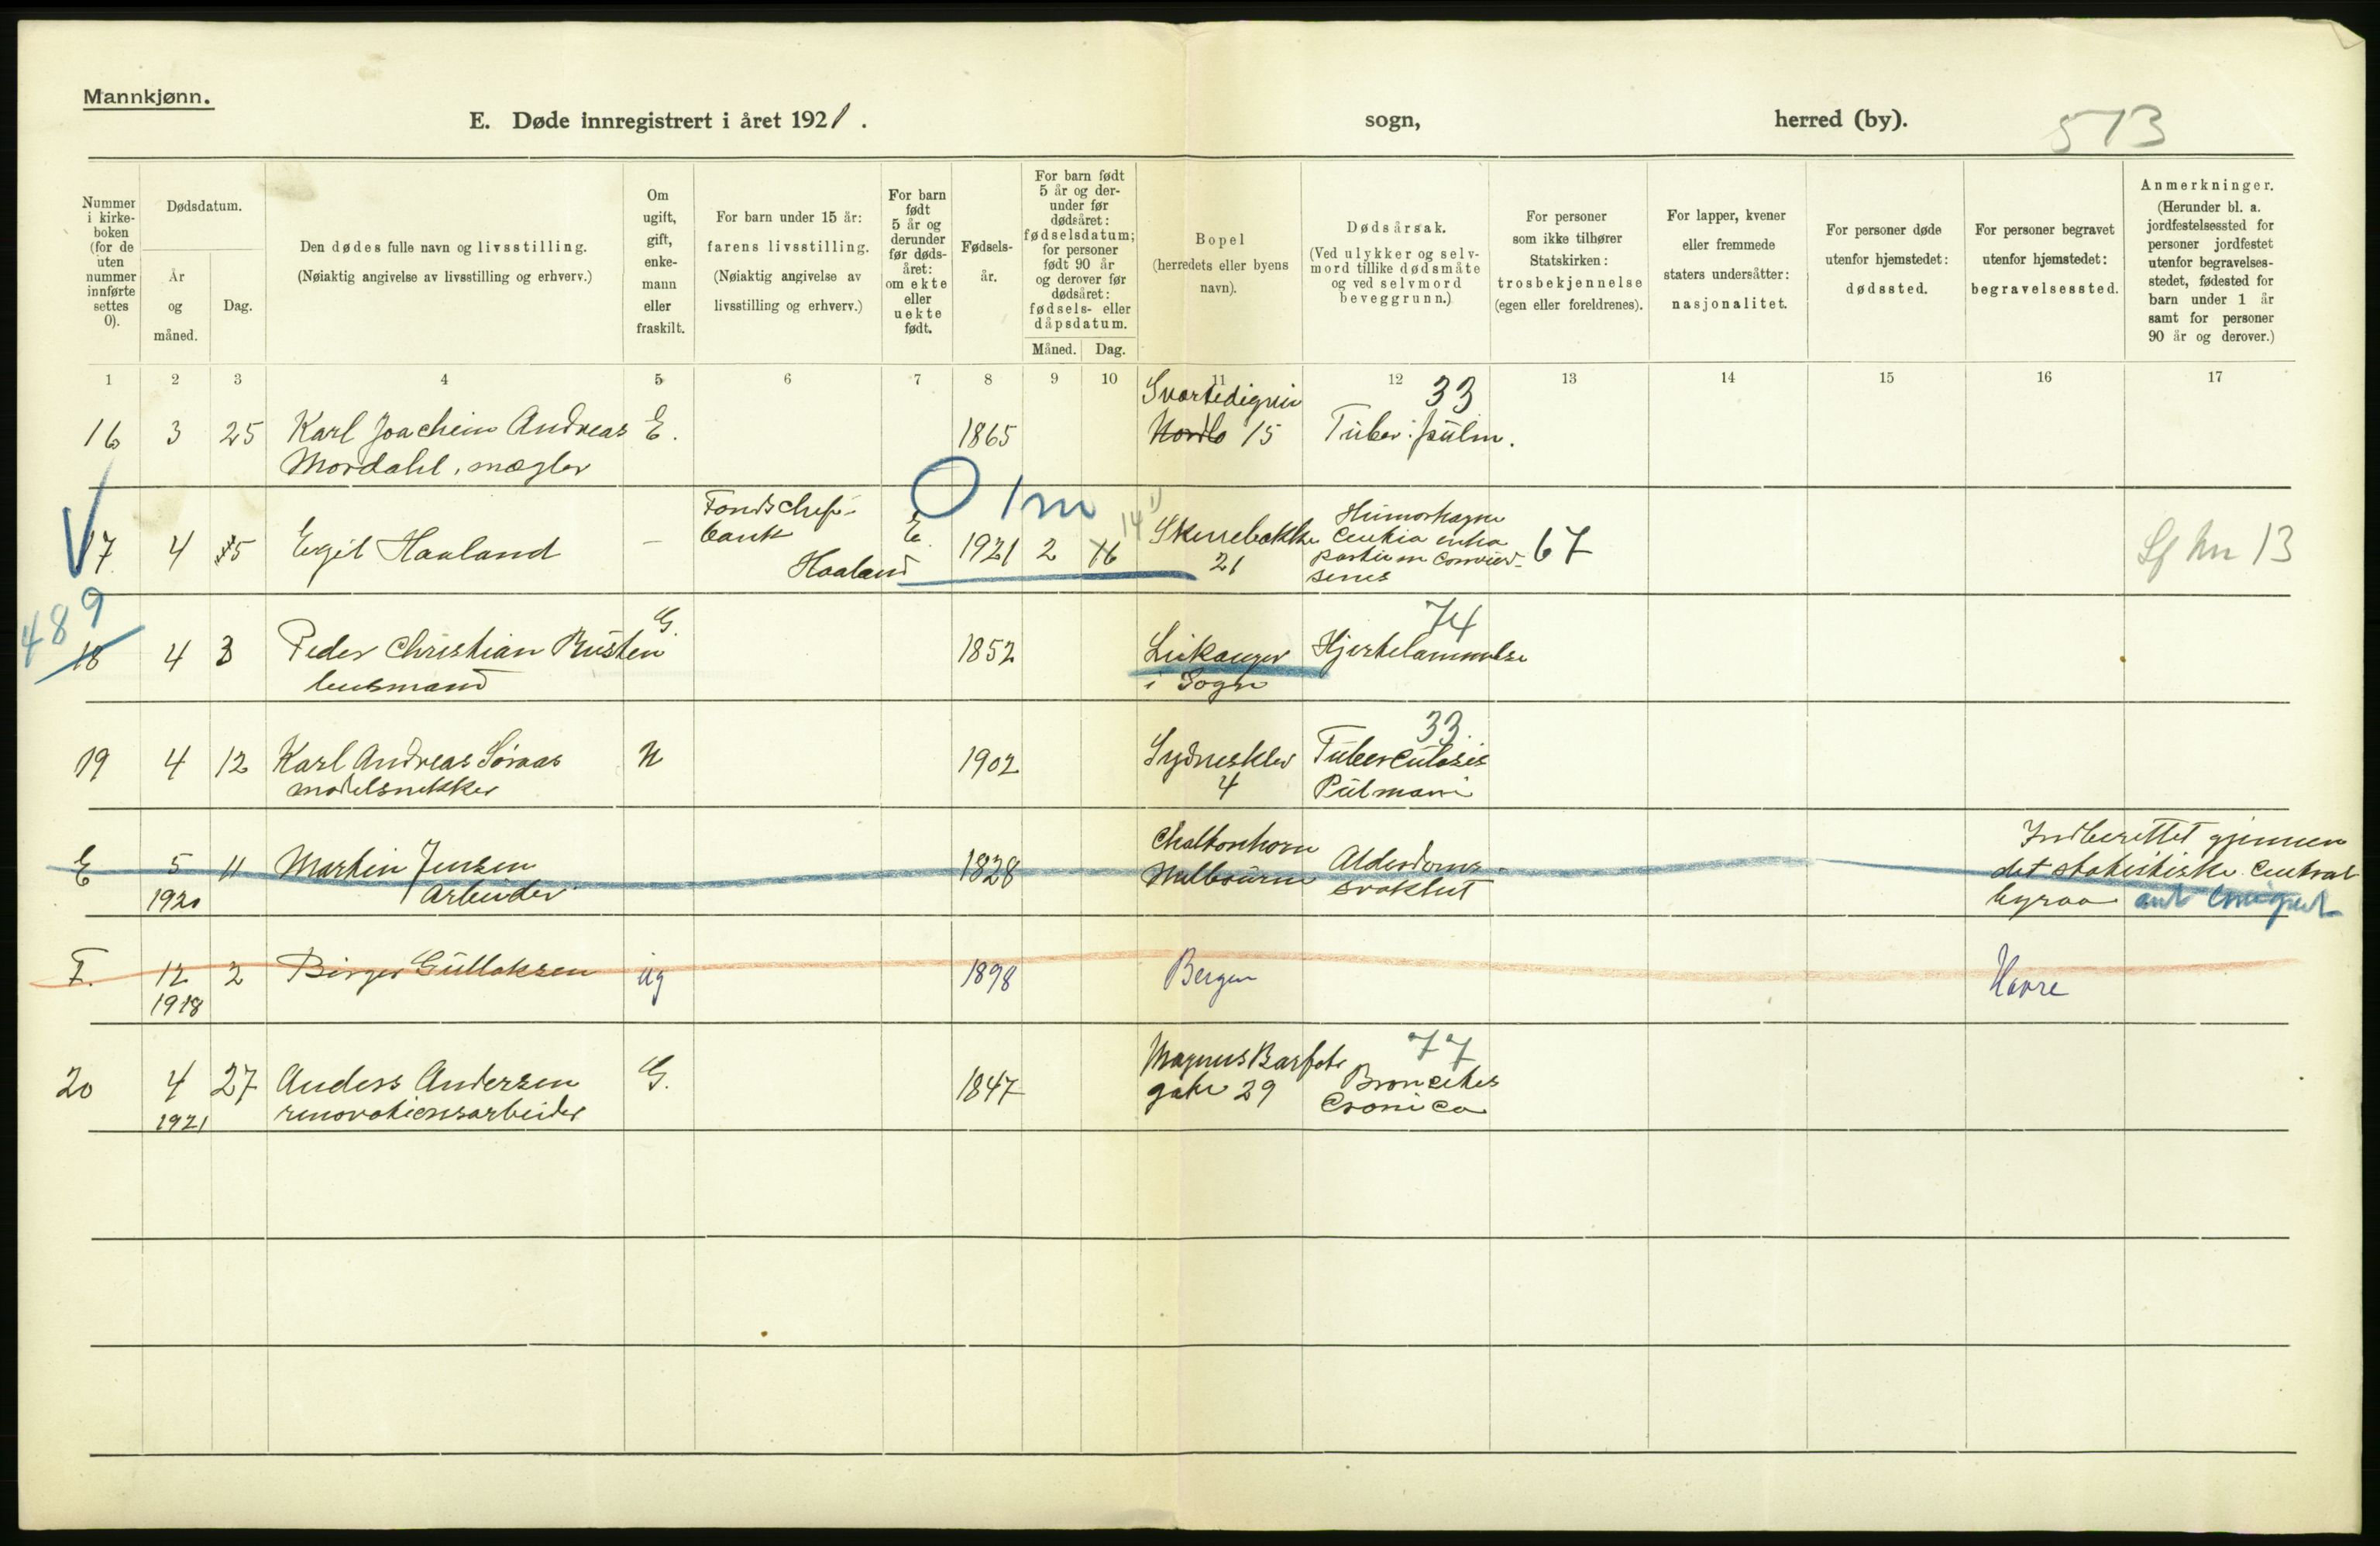 Mannkjønn.
E. Døde innregistrert i året 1921.
sogn,
herred (by).
513
Nummer
i kirke-
boken
(for de
uten
nummer
innførte
settes
0).
Dødsdatum.
År
og
måned.
Dag.
Den dødes fulle navn og livsstilling.
(Nøiaktig angivelse av livsstilling og erhverv.)
Om
ugift,
gift,
enke-
mann
eller
fraskilt.
For barn under 15 år:
farens livsstilling.
(Nøiaktig angivelse av
livsstilling og erhverv.)
For barn
født
5 år og
derunder
før døds-
året:
om ekte
eller
uekte
født.
Fødsels-
år.
For barn født
5 år og der-
under før
dødsåret:
fødselsdatum;
for personer
født 90 år
og derover før
dødsåret:
fødsels- eller
dåpsdatum.
Måned.
Dag.
Bopel
(herredets eller byens
navn).
Dødsårsak.
(Ved ulykker og selv-
mord tillike dødsmåte
og ved selvmord
beveggrunn.)
For personer
som ikke tilhører
Statskirken:
trosbekjennelse
(egen eller foreldrenes).
For lapper, kvener
eller fremmede
staters undersåtter:
nasjonalitet.
For personer døde
utenfor hjemstedet:
dødssted.
For personer begravet
utenfor hjemstedet:
begravelsessted.
Anmerkninger.
(Herunder bl. a.
jordfestelsessted for
personer jordfestet
utenfor begravelses-
stedet, fødested for
barn under 1 år
samt for personer
90 år og derover.)
1 2 3 4 5 6 7 8 9 10 11 12 13 14 15 16 17
33
16 3 25 Karl Joachim Andreas E. 1865 15 Tuber. pulm.
Mordahl, mægler
O 1m
bank E. 14
17 4 5 Egil Haaland – 1921 2 16 67 13
Haaland 21
489
74
18 4 3 Peder Christian Rusten G. 1852 Leikanger Hjertelammelse
lensmand i Sogn
33.
19 4 12 Karl Andreas Søraas U 1902 Sydnesklev Tuberculosis
modelsnekker 4
E 5 11 Martin Jensen 1828 Melbourne Alderdoms-
1920 Arbeider svakhet
Indberettet gjennem
det statistiske Central
byraa
F. 12 2 Birger Gullaksen ug 1898 Bergen Havre
1918
77
20 4 27 Anders Andersen G. 1847 Magnus Barfots
1921 renovationsarbeider gate 29 Cronica